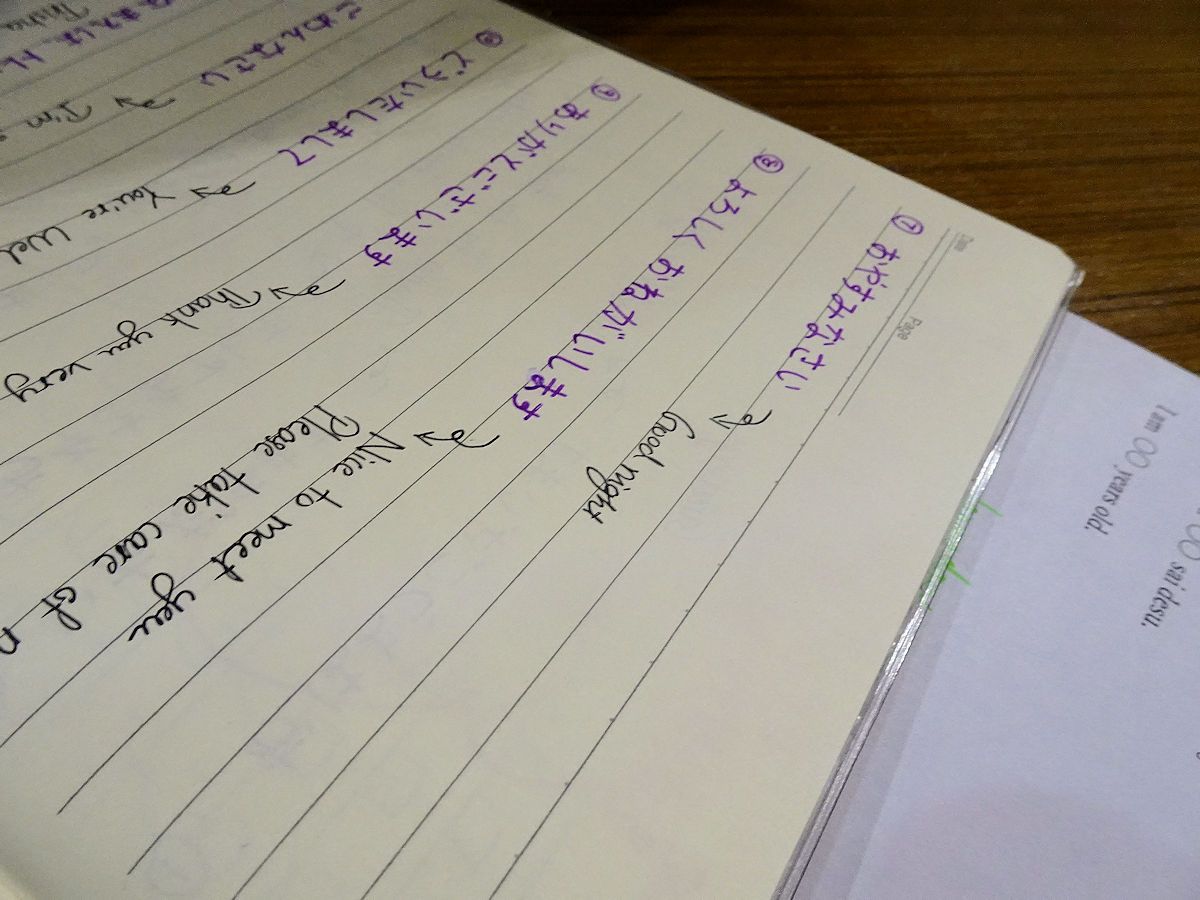 Date
Page
⑦ おやすみなさい
→ Good night
⑧ よろしく おねがいします
→ Nice to meet you
Please take care of
⑨ ありがとございます
→ Thank you very
⑩ どういたしまして
→ You're Wel
ごめんなさい
→ I'm
Trisha
I am OO years old.
OO sai desu.